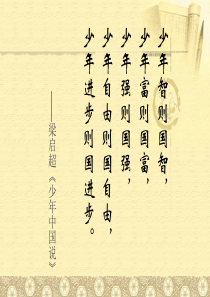 少年智则国智，
少年富则国富，
少年强则国强，
少年自由则国自由，
少年进步则国进步。
——梁启超《少年中国说》